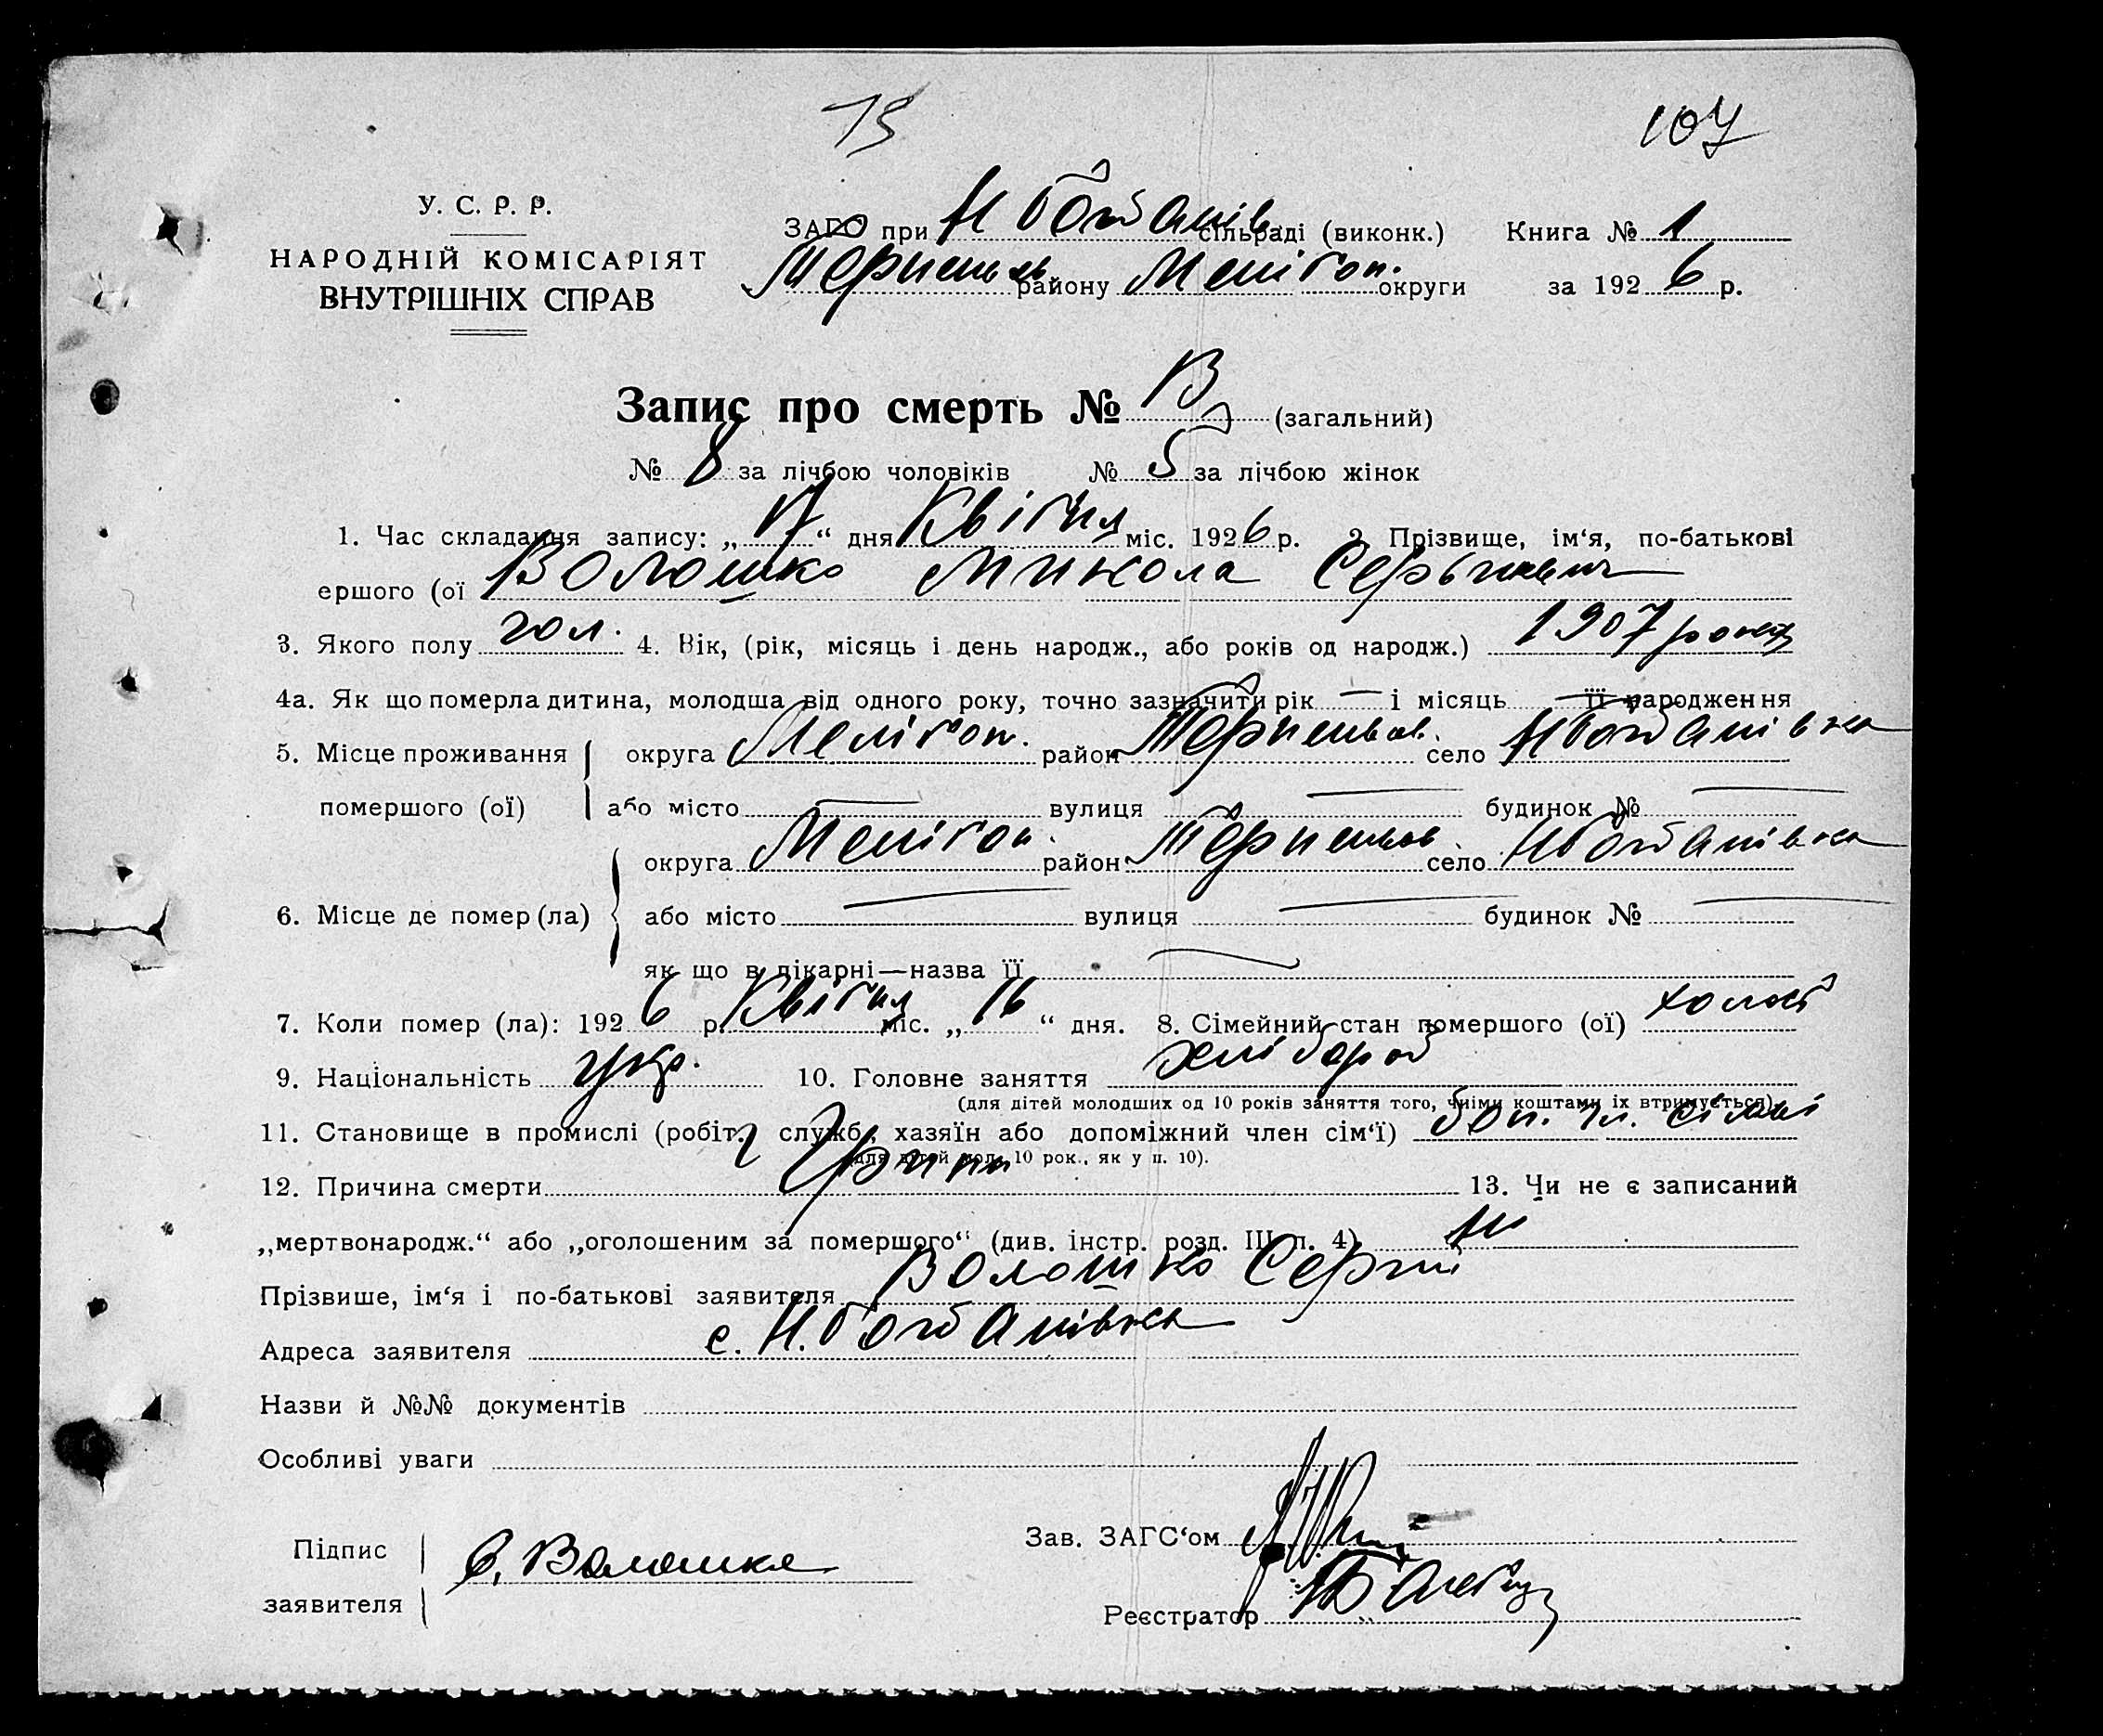 107
У. С. Р. Р.
НАРОДНІЙ КОМІСАРІЯТ
ВНУТРІШНІХ СПРАВ
ЗАГС при Н Богданів. сільраді (виконк.) Книга № 1
району Мелітоп. округи за 1926 р.
Запис про смерть № 13 (загальний)
№ 8 за лічбою чоловіків № 5 за лічбою жінок
1. Час складання запису: „17“ дня Квітня міс. 1926 р. 2. Прізвище, ім‘я, по-батькові
ершого (ої Волошко Микола Сергієвич
3. Якого полу чол. 4. Вік, (рік, місяць і день народж., або років од народж.) 1907 року
4а. Як що померла дитина, молодша від одного року, точно зазначити рік — і місяць — її народження
5. Місце проживання округа Мелітоп. район село Н Богданівка
помершого (ої) або місто — вулиця — будинок № —
округа Мелітоп. район село Н Богданівка
6. Місце де помер (ла) або місто — вулиця — будинок № —
як що в лікарні—назва її —
7. Коли помер (ла): 1926 р. Квітня міс. „16“ дня. 8. Сімейний стан помершого (ої) холост
9. Національність укр. 10. Головне заняття хлібороб
(для дітей молодших од 10 років заняття того, чиїми коштами їх втримується)
11. Становище в промислі (робіт., служб., хазяїн або допоміжний член сім‘ї) доп. чл. сімї
(для дітей мол. 10 рок., як у п. 10).
12. Причина смерти Грипп 13. Чи не є записаний
„мертвонародж.“ або „оголошеним за помершого“ (див. інстр. розд. III п. 4) Ні
Прізвише, ім‘я і по-батькові заявителя Волошко Сергій
Адреса заявителя с. Н. Богданівка
Назви й №№ документів
Особливі уваги
Підпис
заявителя С. Волошко
Зав. ЗАГС‘ом
Реєстратор